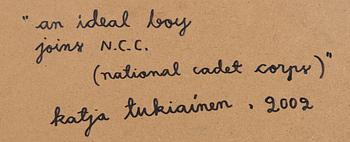 "an ideal boy
joins N.C.C.
(national cadet corps)"
katja tukiainen, 2002